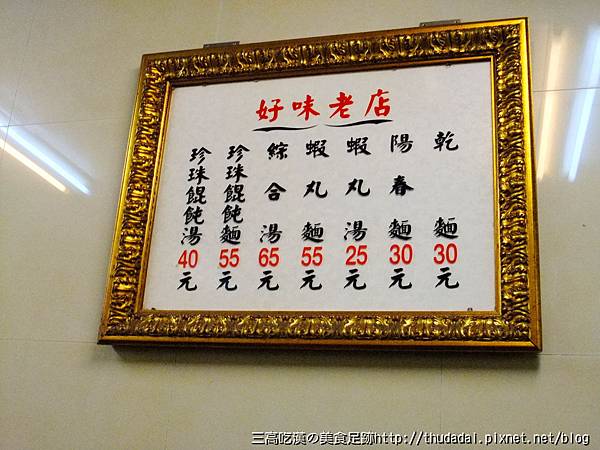 好味老店
乾麵30元
陽春麵30元
蝦丸湯25元
蝦丸麵55元
綜合湯65元
珍珠餛飩麵55元
珍珠餛飩湯40元
三高吃漢の美食足跡http://thudadai.pixnet.net/blog